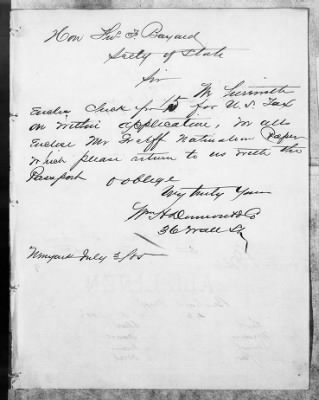 Hon Thos F. Bayard
Secty of State
Sir We herewith
Enclose Check for $1 for U.S. Tax
on within application, we also
Enclose Mr Naturalizn Paper
which please return to us with the
Passport & oblige
Very truly Yours
Wm H Co
36 Wall St
Newyork July 3/85